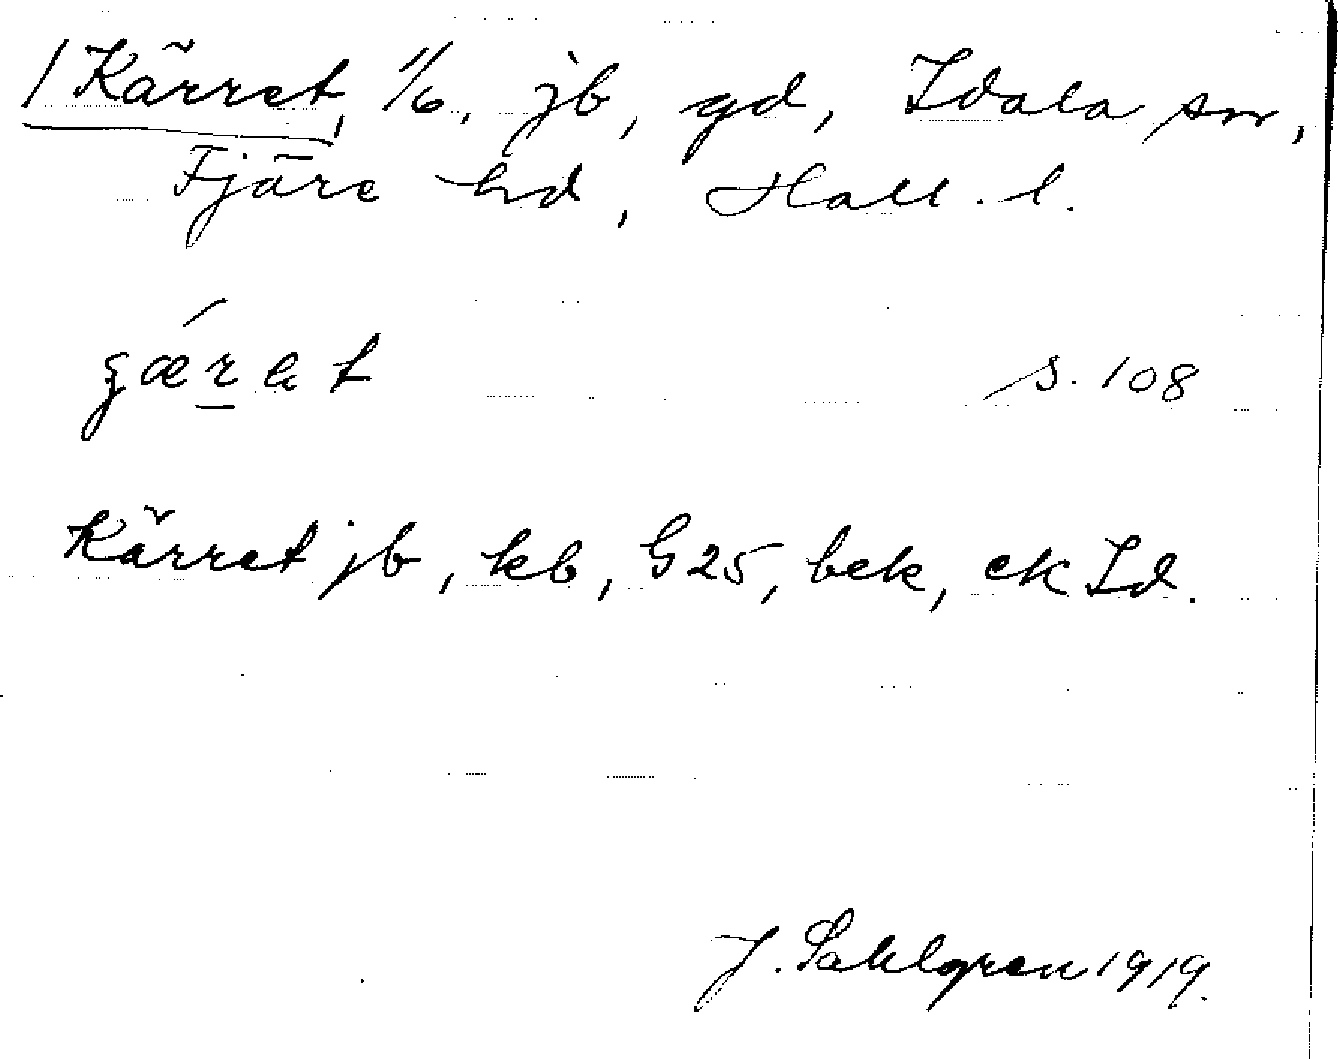 / Kärret, 1/6, jb, gd, Idala sn,
Fjäre hd, Hall. l.
s. 108
Kärret jb, kb, G25, bek, ek Id.
J. Sahlgren 1919.